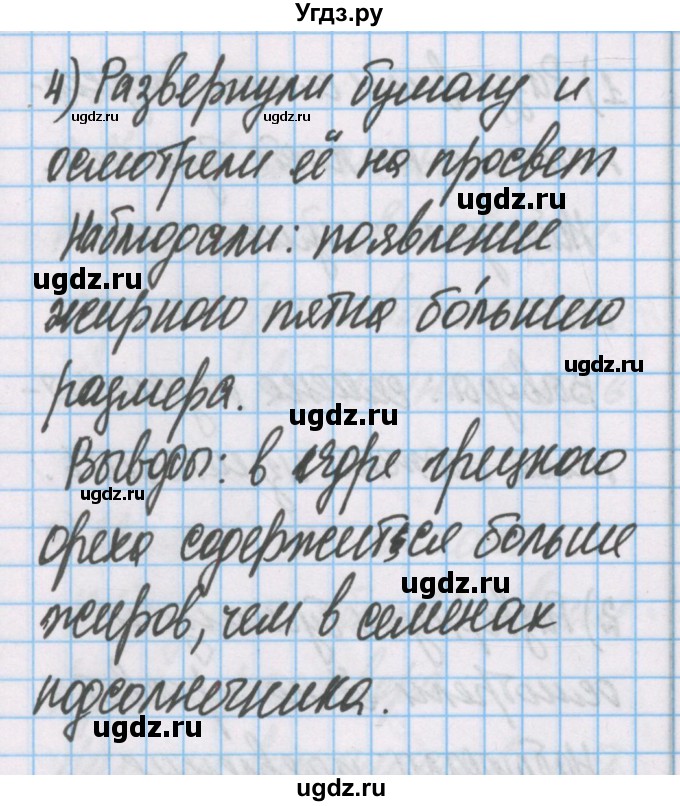 Угдз.ру
4) Развернули бумагу и
ugdz.ru ugdz.ru
осмотрели её на просвет
ugdz.ru
Наблюдали: появление
ugdz.ru
жирного пятна бо́льшего
ugdz.ru
размера.
ugdz.ru
Выводы: в ядре грецкого
ugdz.ru
ореха содержится больше
ugdz.ru
жиров, чем в семенах
ugdz.ru
подсолнечника.
ugdz.ru
ugdz.ru